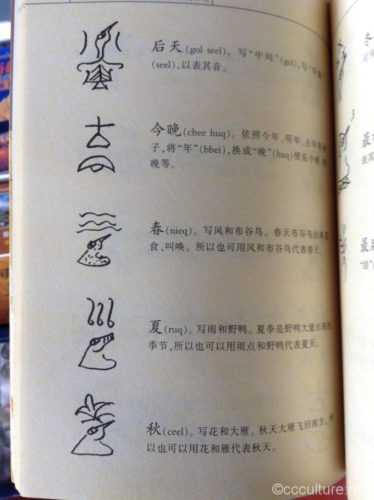 后天(gol seel)。写“中间”(gol),
(seel),以表其音。
今晚(chee huq)。依照今年、明年、
子,将“年”(bbei),换成“晚”(huq)便
晚等。
春(nieq)。写风和布谷鸟。春天布谷鸟
食,叫唤。所以也可用风和布谷鸟代表春天。
夏(ruq)。写雨和野鸭。夏季是野鸭大量
季节,所以也可以用雨点和野鸭代表夏天。
秋(ceel)。写花和大雁。秋天大雁飞回
以也可以用花和雁代表秋天。
冬
3
最
©ccculture